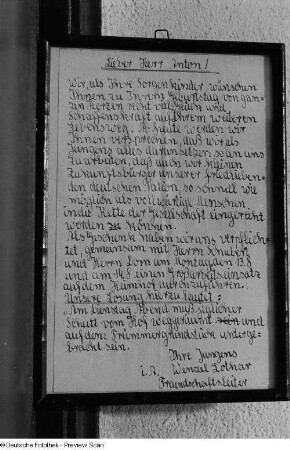 Lieber Herr Anton!
Wir, als Ihre Sorgenkinder wünschen
Ihnen zu Ihrem Geburtstag von gan-
zen Herzen recht viel und
Schaffenskraft auf Ihrem weiteren
Lebensweg. Ab heute werden wir
Ihnen versprechen, daß wir als
Jungens alles daransetzen so an uns
zu arbeiten, daß auch wir kleinen
Zukunftsbürger unserer friedlieben-
den deutschen Nation, so schnell wie
möglich als vollwertige Menschen
in die Kette der Gesellschaft eingereiht
werden zu können.
Als Geschenk haben wir uns verpflich-
tet, gemeinsam mit Herrn
und Herrn Dorn am Montag den 13.8
und am 14.8 einen Großarbeitseinsatz
auf dem Heimhof durchzuführen.
Unsere Losung hierzu lautet:
"Am Dienstag Abend muß jeglicher
Schutt vom Hof weggeräumt sein und
auf dem Trümmergrundstück unterge-
bracht sein.
Ihre Jungens
i.A. Wenzel Lothar
Freundschaftsleiter
© Deutsche Fotothek - Preview Scan